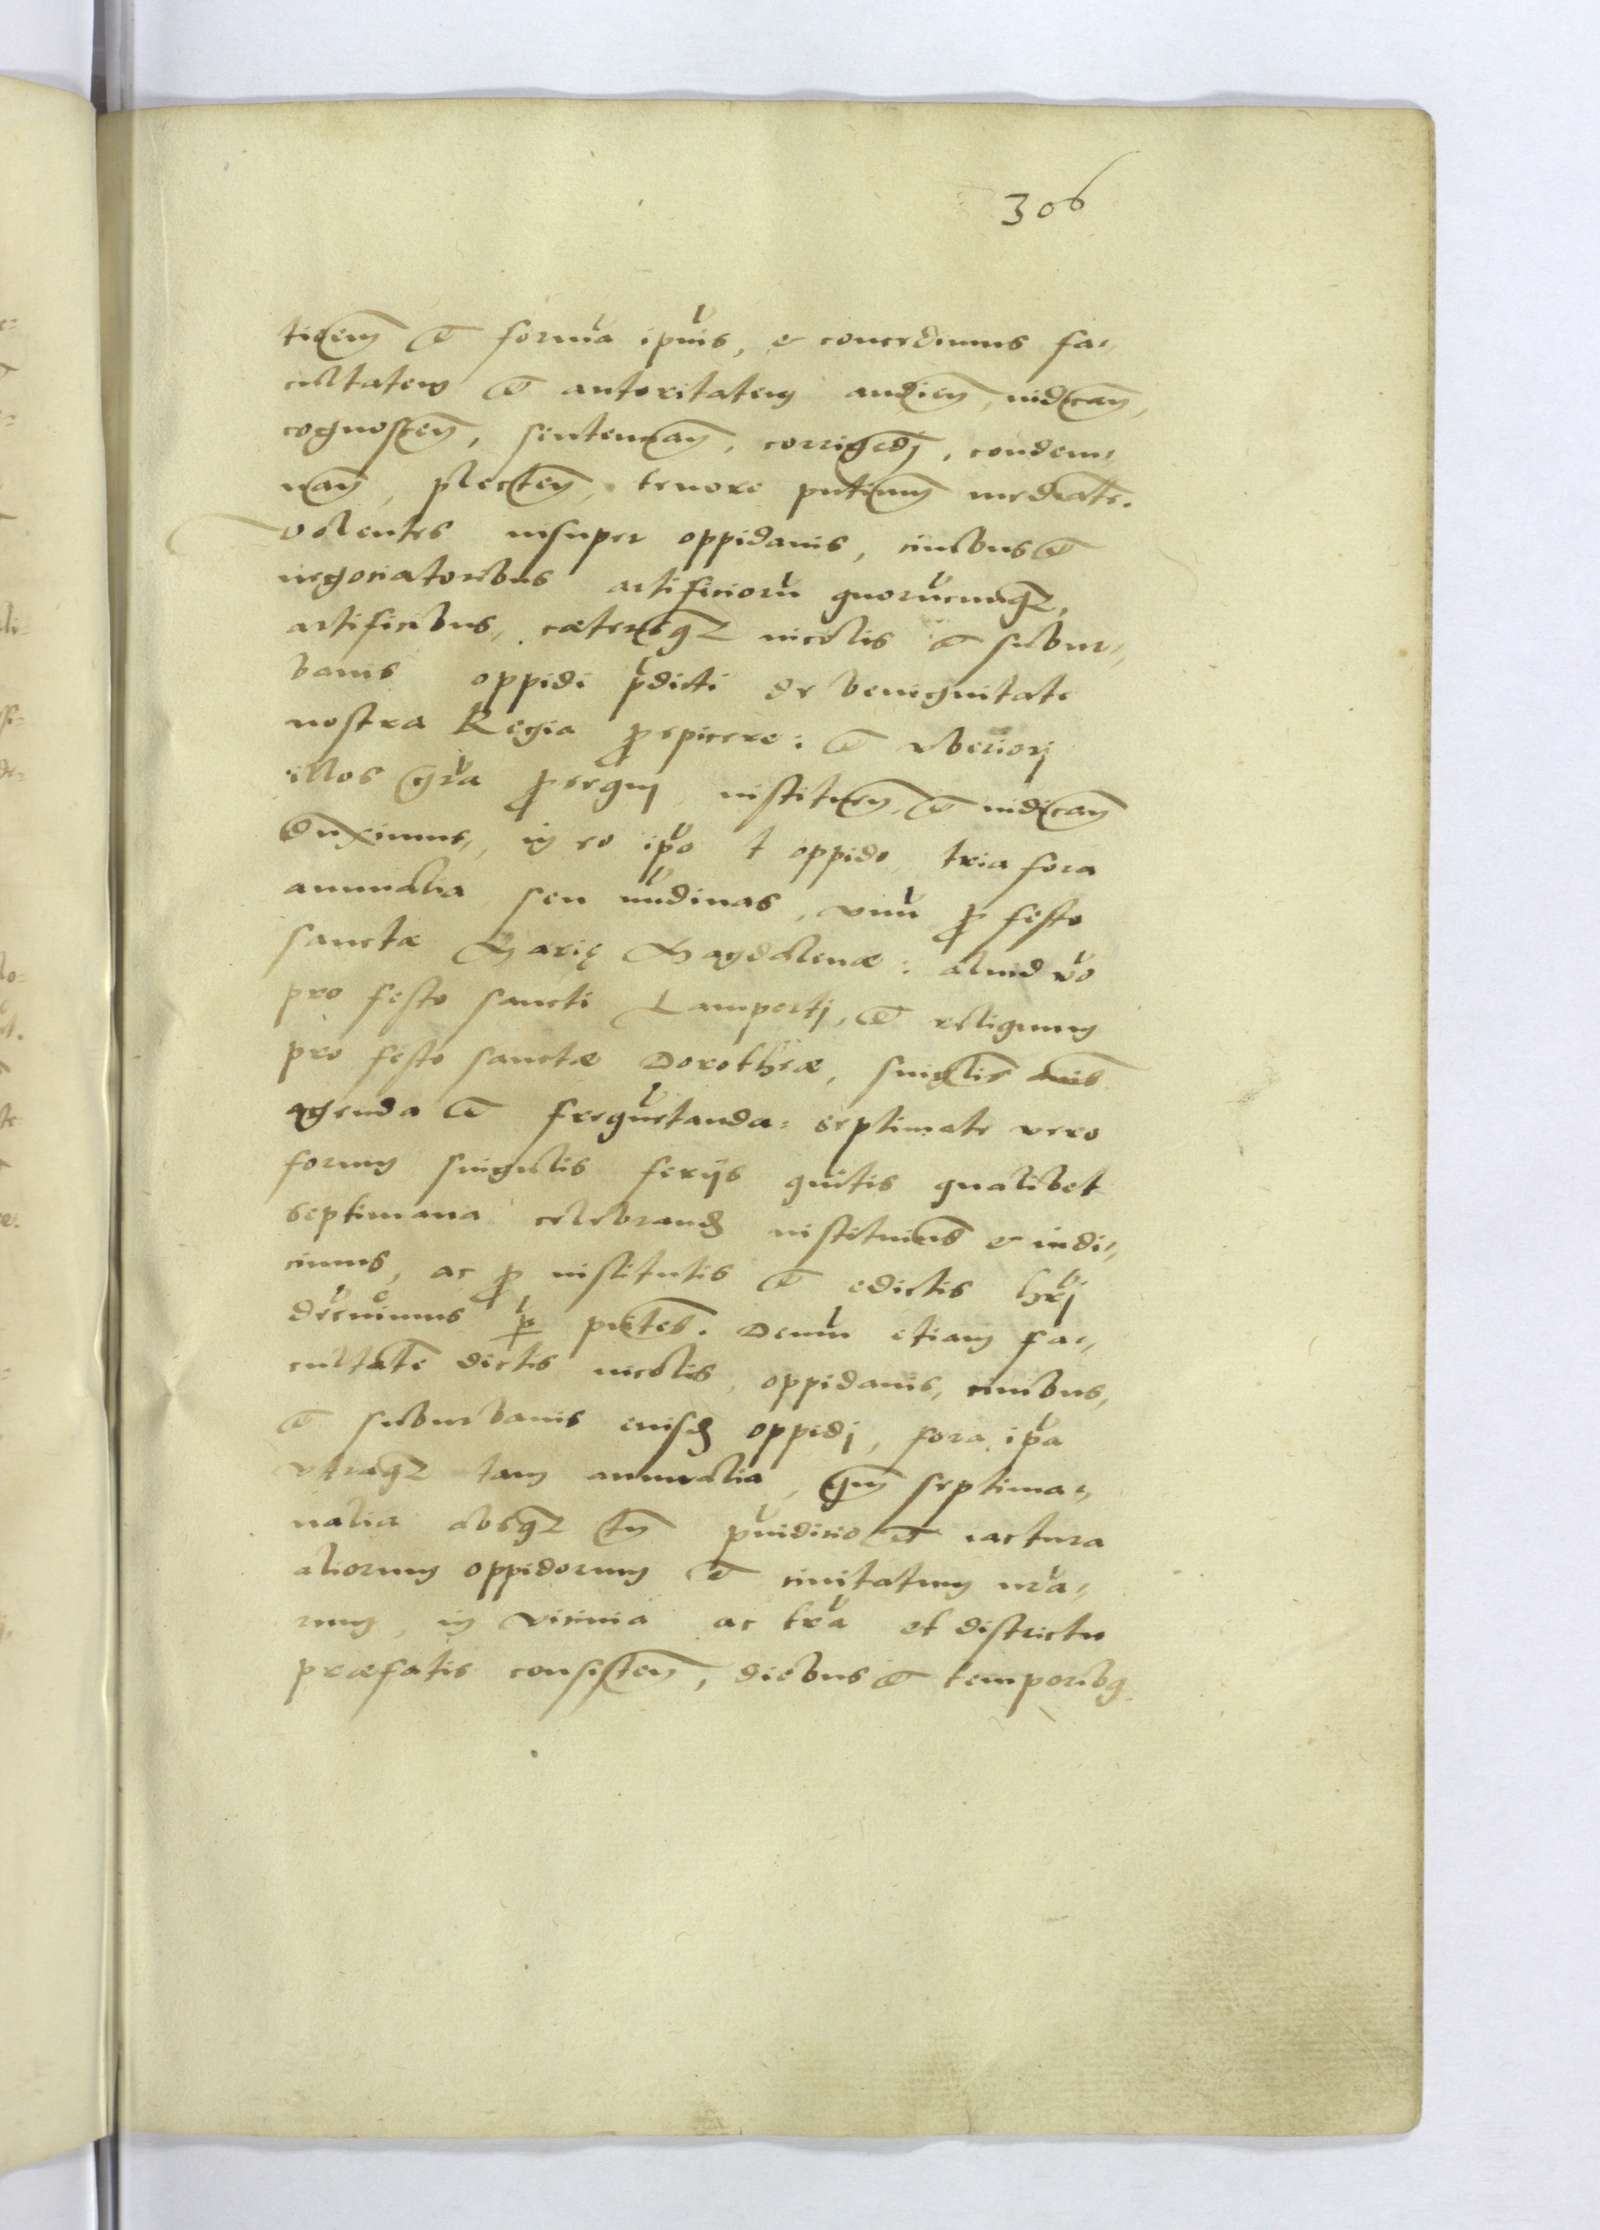 306
et forma ipius, et concedimus fa-
cultatem et autoritatem audien, iudican,
cognoscen, sentencian, corrigedj, condem-
nan, plecten, tenore pntium mediate.
Volentes insuper oppidanis, ciuibus et
negociatoribus artificioru quorucunq,
artificibus, caeterisq incolis et subur-
banis oppidi pdicti de benignitate
nostra Regia pspicere: et vberiorj
illos gra psequj instituen, et indican
duximus, in eo ipo oppido, tria fora
annualia seu nudinas, vnu p festo
sanctae Marię Magdalenae: aliud vo
pro festo sancti Lampertj, et reliquum
pro festo sanctae Dorotheae, singlis anis
agenda et frequetanda: septimale vero
forum singulis ferijs quitis qualibet
septimana celebrand instituimus et indi-
cimus, ac p institutis et edictis hrj
decreuimus p pntes. Demu etiam fa-
cultate dictis incolis, oppidanis, ciuibus,
et suburbanis eiusd oppidj, fora ipa
vtraq tam annualia, qm septima-
nalia absq tn piudicio et iactura
aliorum oppidorum et ciuitatum nra-
rum, in vicinia ac tra et districtu
praefatis consisten, diebus et temporibq